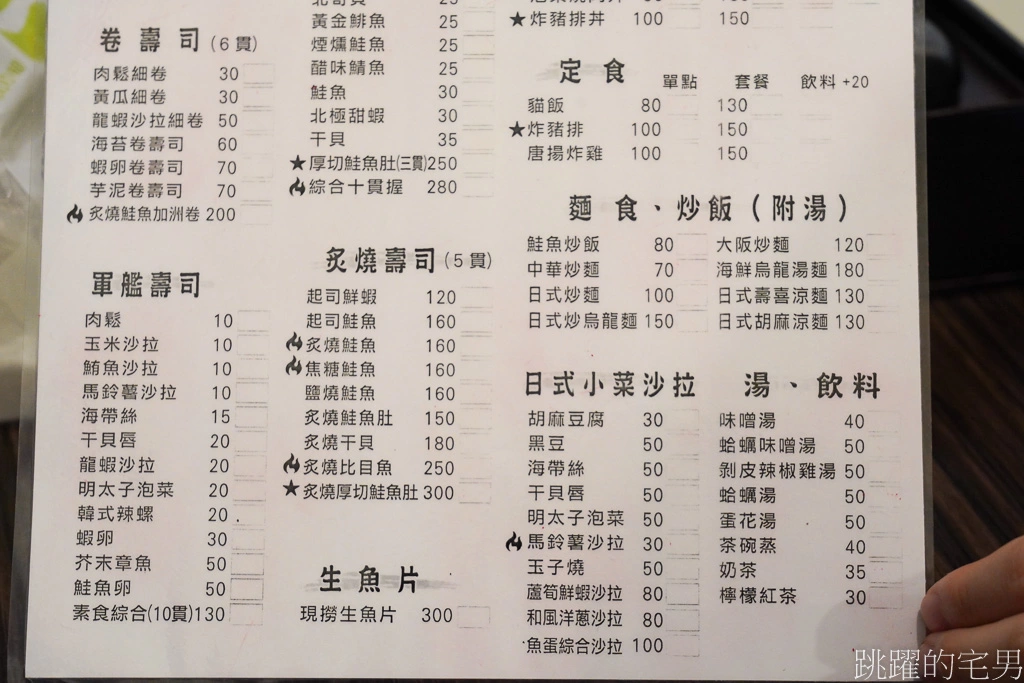 卷壽司(6貫)
肉鬆細卷 30
黃瓜細卷 30
龍蝦沙拉細卷 50
海苔卷壽司 60
蝦卵卷壽司 70
芋泥卷壽司 70
炙燒鮭魚加洲卷 200
軍艦壽司
肉鬆 10
玉米沙拉 10
鮪魚沙拉 10
馬鈴薯沙拉 10
海帶絲 15
干貝唇 20
龍蝦沙拉 20
明太子泡菜 20
韓式辣螺 20
蝦卵 30
芥末章魚 50
鮭魚卵 50
素食綜合(10貫) 130
25
黃金鯡魚 25
煙燻鮭魚 25
醋味鯖魚 25
鮭魚 30
北極甜蝦 30
干貝 35
★厚切鮭魚肚(三貫) 250
綜合十貫握 280
炙燒壽司(5貫)
起司鮮蝦 120
起司鮭魚 160
炙燒鮭魚 160
焦糖鮭魚 160
鹽燒鮭魚 160
炙燒鮭魚肚 150
炙燒干貝 180
炙燒比目魚 250
★炙燒厚切鮭魚肚 300
生魚片
現撈生魚片 300
★炸豬排丼 100 150
定食 單點 套餐 飲料+20
貓飯 80 130
★炸豬排 100 150
唐揚炸雞 100 150
麵食、炒飯(附湯)
鮭魚炒飯 80 大阪炒麵 120
中華炒麵 70 海鮮烏龍湯麵 180
日式炒麵 100 日式壽喜涼麵 130
日式炒烏龍麵 150 日式胡麻涼麵 130
日式小菜沙拉
胡麻豆腐 30
黑豆 50
海帶絲 50
干貝唇 50
明太子泡菜 50
馬鈴薯沙拉 30
玉子燒 50
蘆筍鮮蝦沙拉 80
和風洋蔥沙拉 80
魚蛋綜合沙拉 100
湯、飲料
味噌湯 40
蛤蠣味噌湯 50
剝皮辣椒雞湯 50
蛤蠣湯 50
蛋花湯 50
茶碗蒸 40
奶茶 35
檸檬紅茶 30
跳躍的宅男